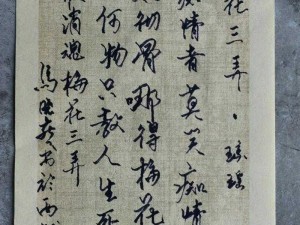 花三弄·瑶
痴情者莫笑痴情
彻骨哪得梅花
何物只教人生死
消魂梅花三弄
馬书於西